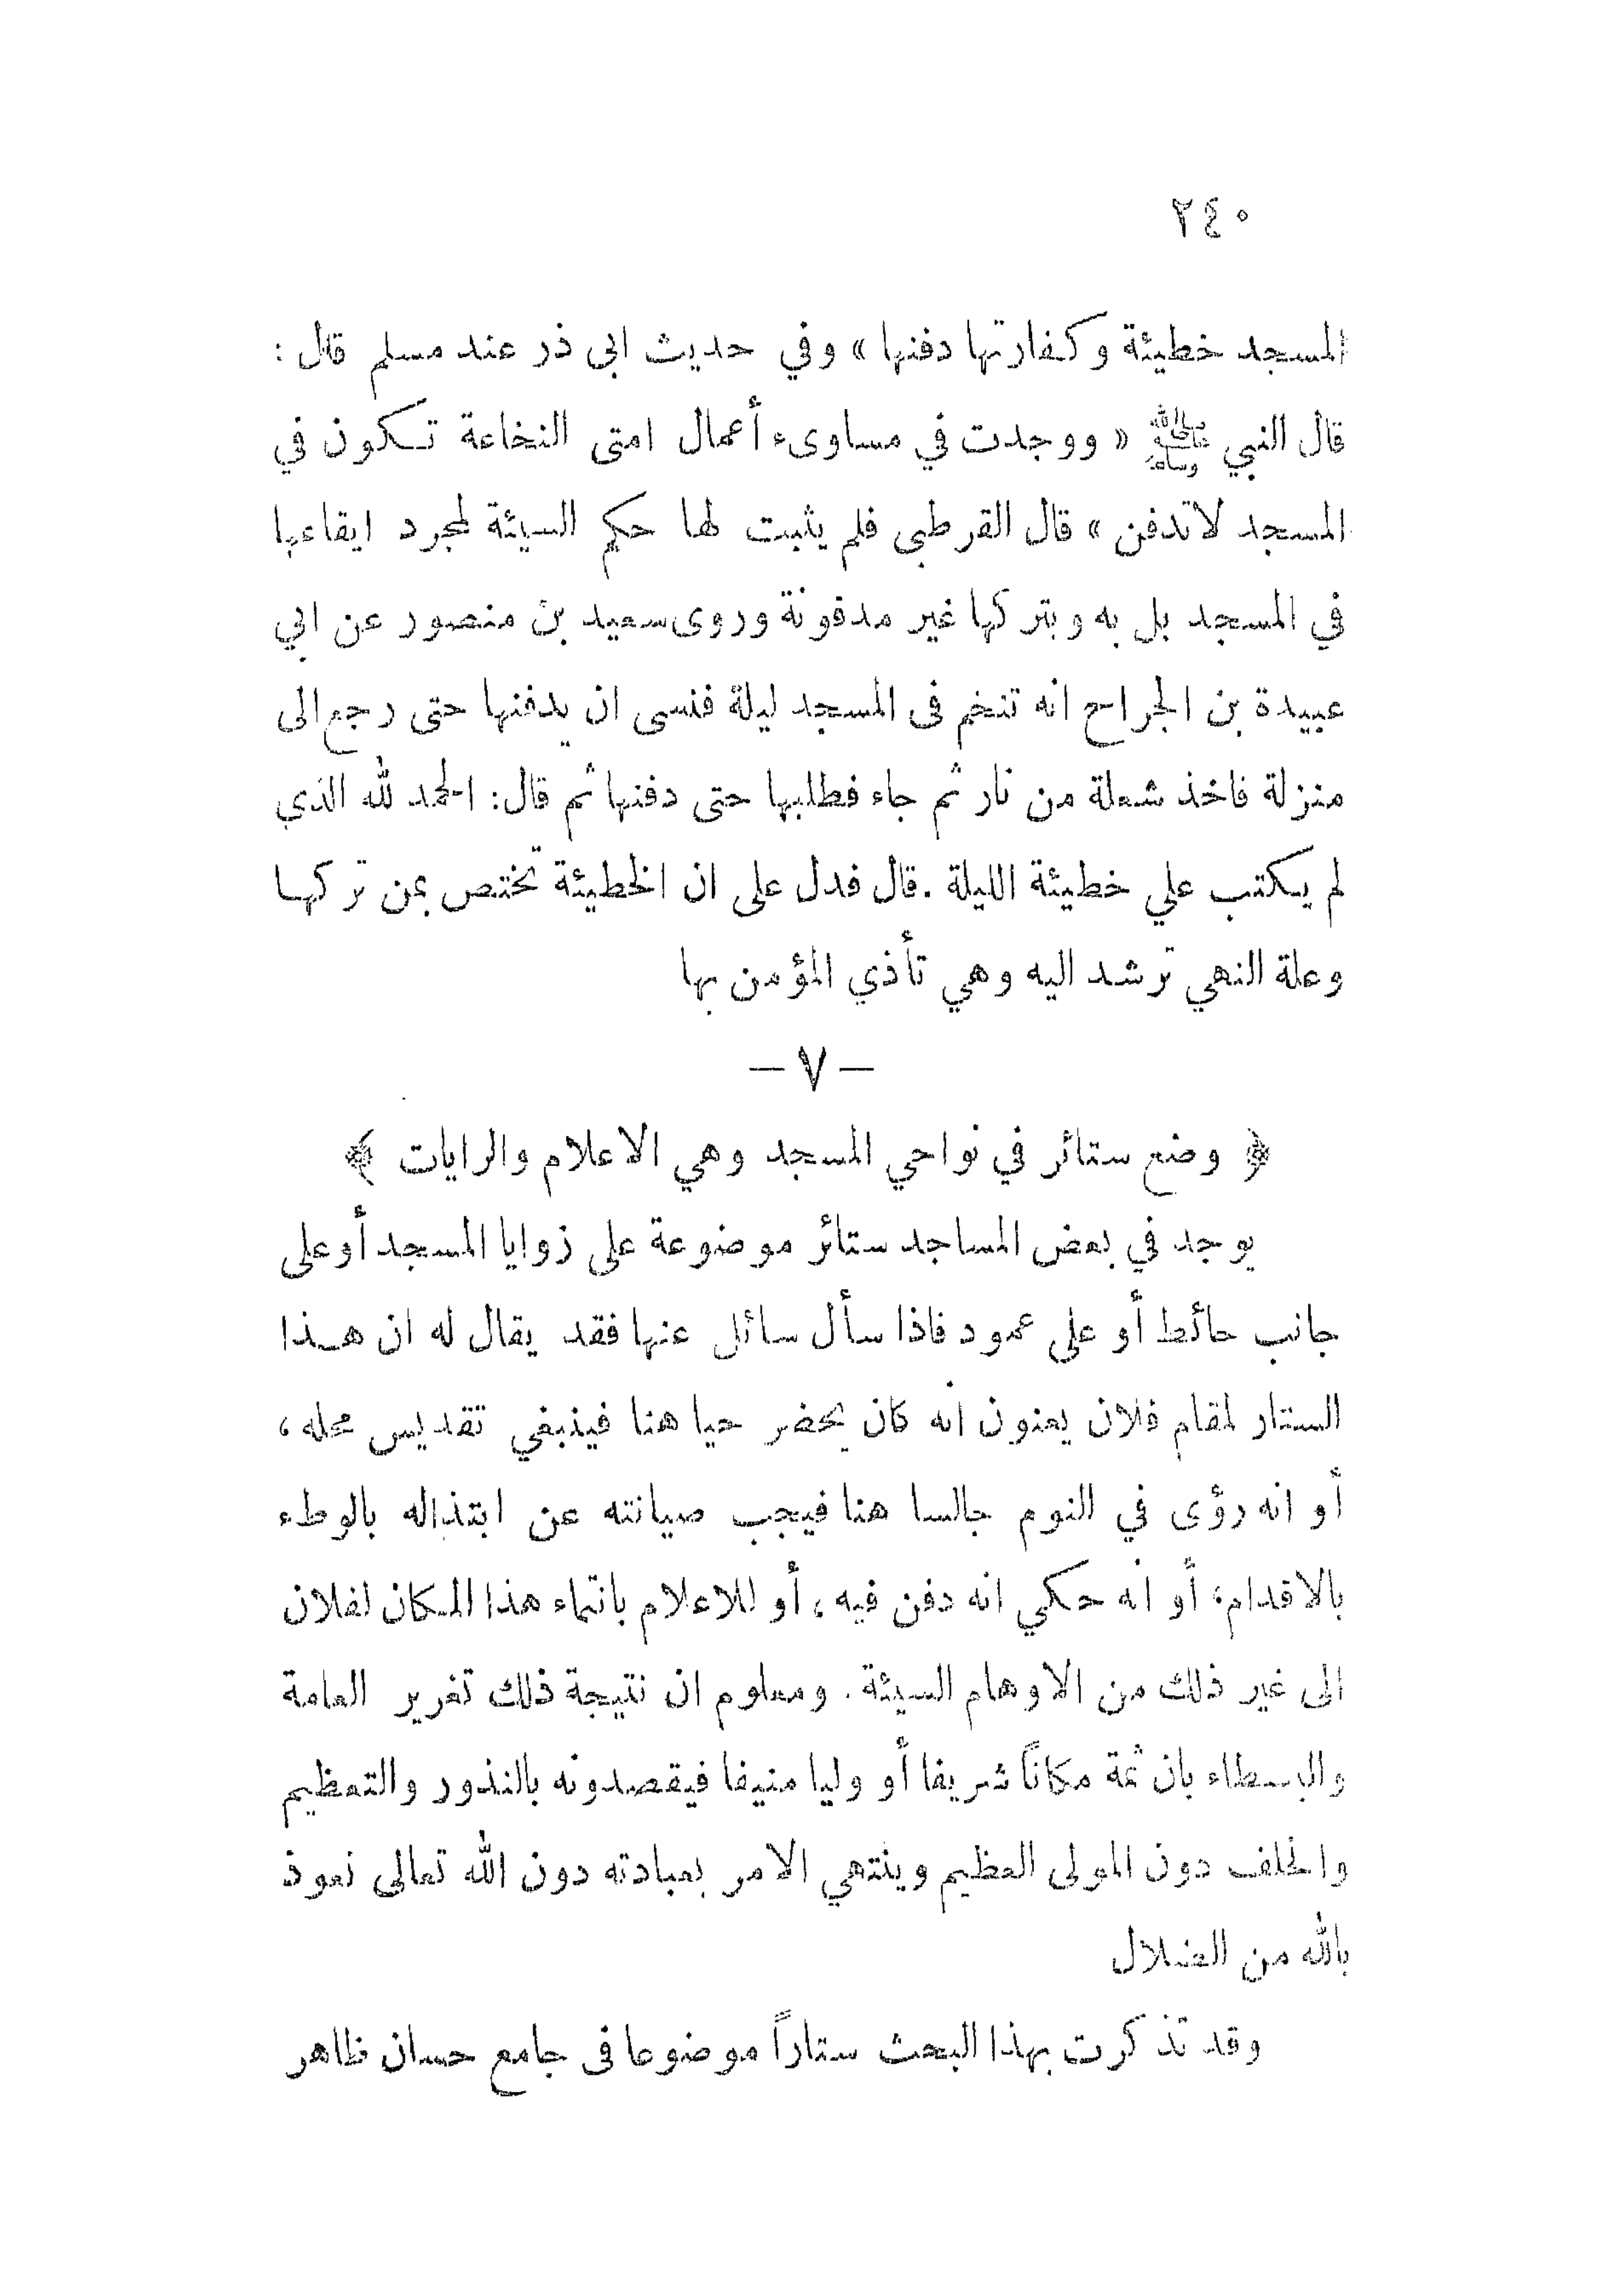 ٢٤٠
المسجد خطيئة وكفارتها دفنها » وفي حديث ابى ذر عند مسلم قال :
قال النبي ﷺ « ووجدت في مساوىء أعمال امتى النخاعة تكون في
المسجد لاتدفن » قال القرطبى فلم يثبت لها حكم السيئة لمجرد ايقاعها
في المسجد بل به وبتركها غير مدفونة وروى سعيد بن منصور عن ابي
عبيدة بن الجراح انه تنخم فى المسجد ليلة فنسى ان يدفنها حتى رجع الى
منزلة فاخذ شعلة من نار ثم جاء فطلبها حتى دفنها ثم قال: الحمد لله الذي
لم يكتب علي خطيئة الليلة . قال فدل على ان الخطيئة تختص بمن تركها
وعلة النهي ترشد اليه وهي تأذي المؤمن بها
— ٧ —
﴿ وضع ستائر في نواحي المسجد وهي الاعلام والرايات ﴾
يوجد في بعض المساجد ستائر موضوعة على زوايا المسجد أوعلى
جانب حائط أو على عمود فاذا سأل سائل عنها فقد يقال له ان هذا
الستار لمقام فلان يعنون انه كان يحضر حيا هنا فينبغي تقديس محله ،
أو انه رؤى في النوم جالسا هنا فيجب صيانته عن ابتذاله بالوطء
بالاقدام ، أو انه حكي انه دفن فيه ، أو للاعلام بانتماء هذا المكان لفلان
الى غير ذلك من الاوهام السيئة . ومعلوم ان نتيجة ذلك تغرير العامة
والبسطاء بان ثمة مكاناً شريفا أو وليا منيفا فيقصدونه بالنذور والتعظيم
والحلف دون المولى العظيم وينتهي الامر بعبادته دون الله تعالى نعوذ
بالله من الضلال
وقد تذكرت بهذا البحث ستاراً موضوعا فى جامع حسان ظاهر